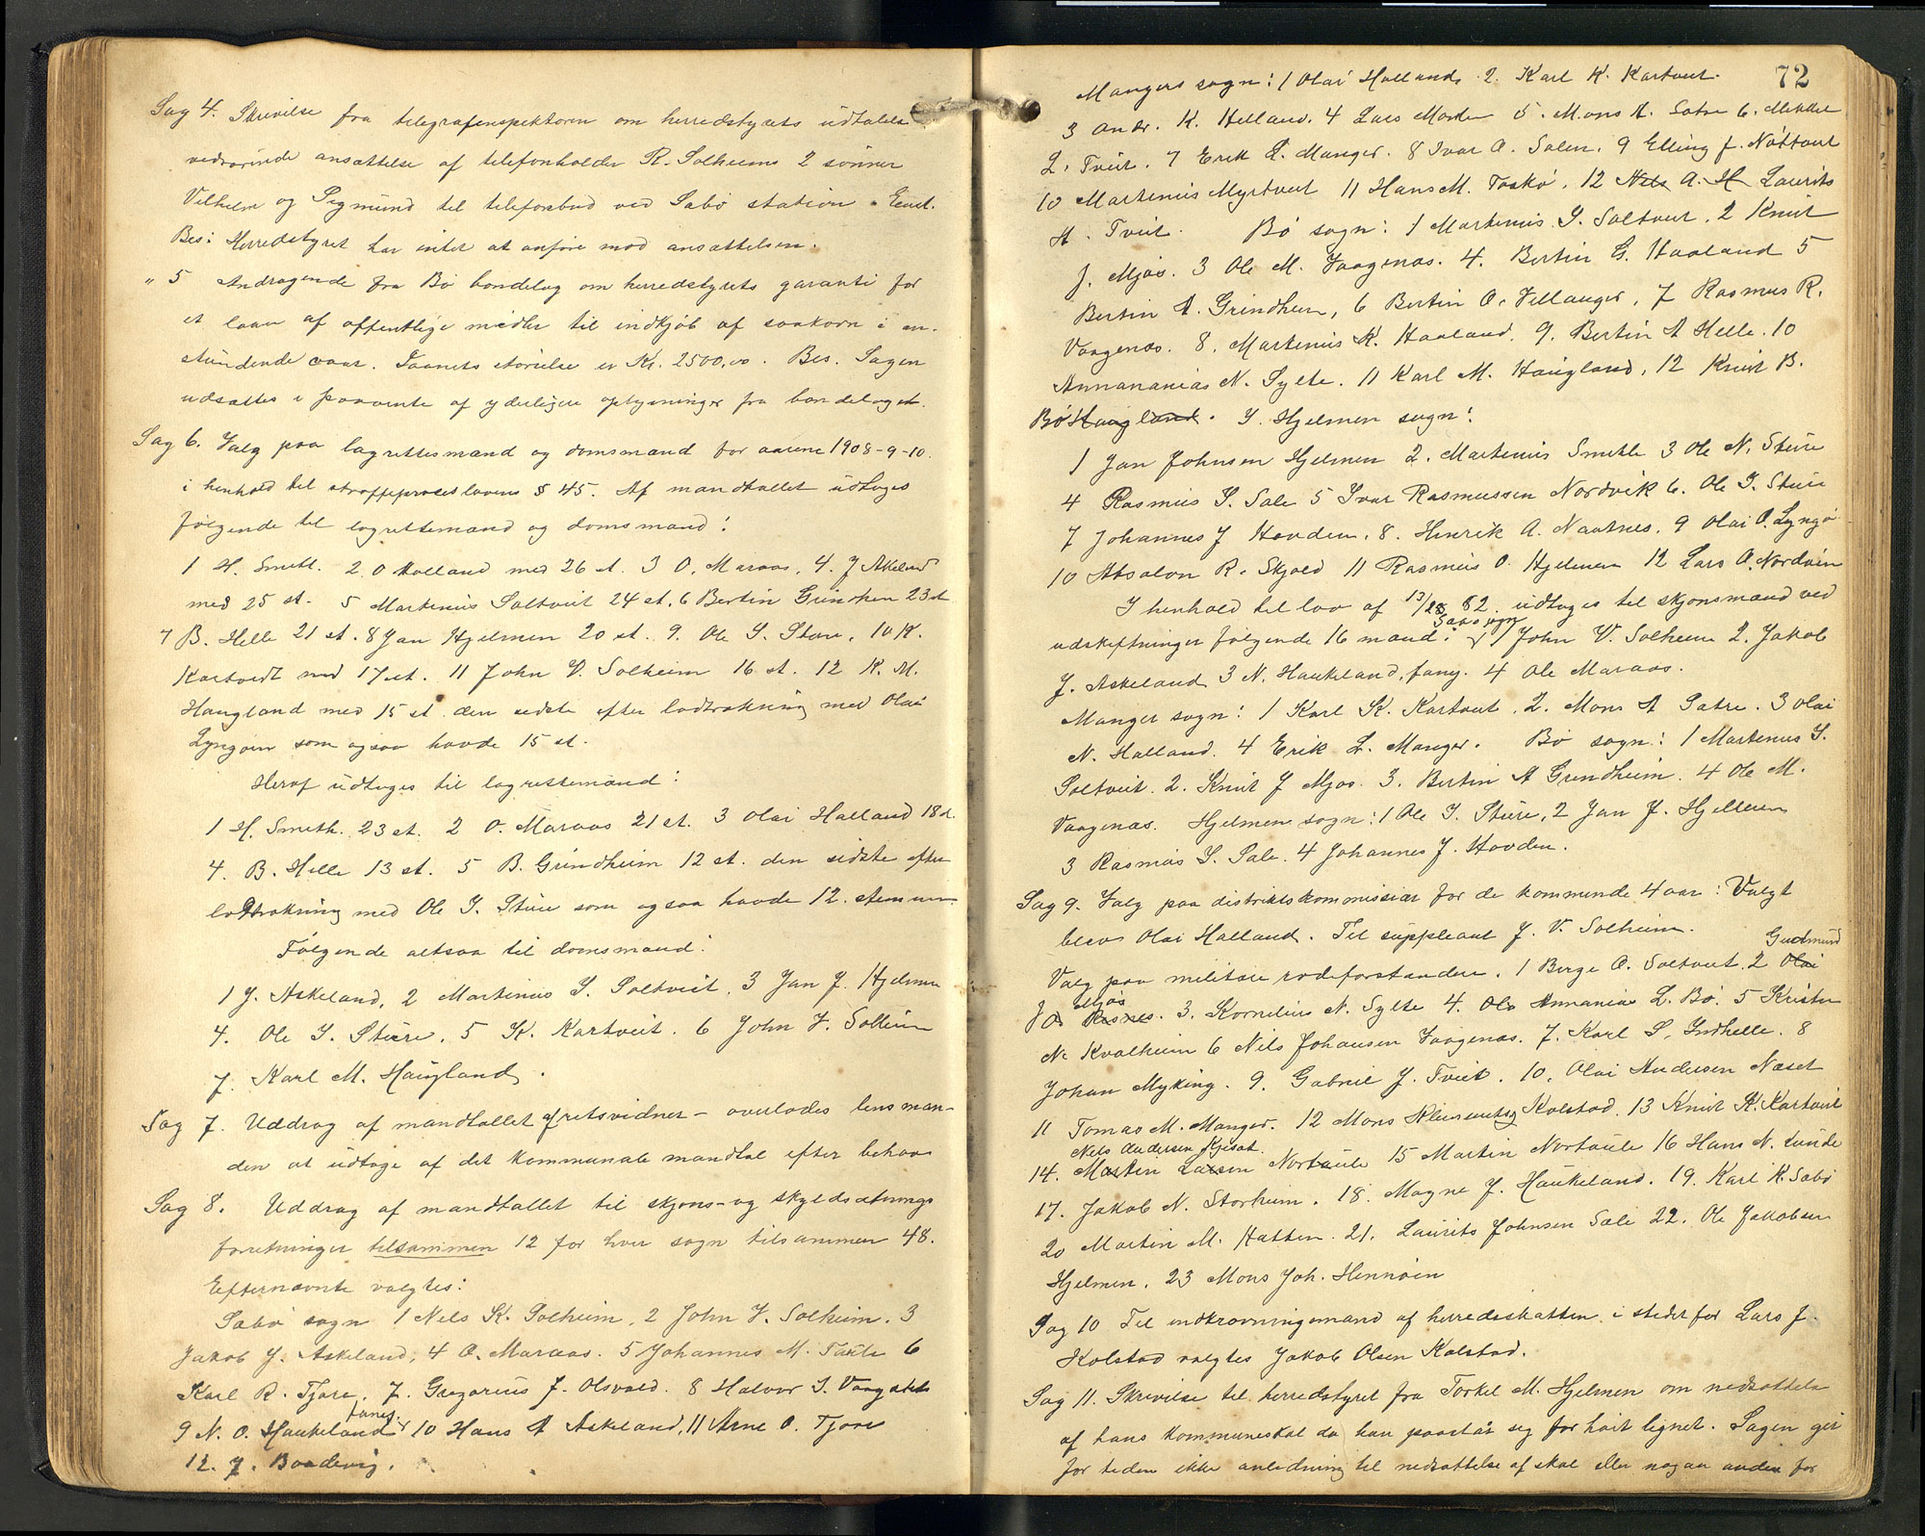 Sag 4. Skrivelse fra telegrafinspektøren om herredstyrets udtalelse
vedrørende ansættelse af telefonholder R. Solheims 2 sønner
Vilhelm og Sigmund til telefonbud ved Sæbø station. Enst.
Bes: Herredstyret har intet at anføre mod ansættelsen.
" 5 Andragende fra Bø bondelag om herredstyrets garanti for
et laan af offentlige midler til indkjøb af saakorn i an-
stundende vaar. Laanets størrelse er Kr. 2500,00. Bes. Sagen
udsættes i paavente af yderligere oplysninger fra bondelaget.
Sag 6. Valg paa lagrettesmænd og domsmænd for aarene 1908-9-10.
i henhold til straffeproseslovens § 45. Af mandtallet udtoges
følgende til lagrettemænd og domsmænd:
1 H. Smith. 2. O Halland med 26 st. 3 O. Maraas, 4. J Askeland
med 25 st. 5 Martinus Soltveit 24 st. 6 Bertin Grindhem 23 st
7 B. Helle 21 st. 8 Jan Hjelmen 20 st. 9. Ole I. Sture, 10 K.
Kartvedt med 17 st. 11 John V. Solheim 16 st. 12 K. M.
Haugland med 15 st den sidste efter lodtrækning med Olai
Lyngøen som ogsaa havde 15 st.
Heraf udtoges til lagrettemænd:
1 H. Smith. 23 st. 2 O. Maraas 21 st. 3 Olai Halland 18 st.
4. B. Helle 13 st. 5 B. Grindheim 12 st. den sidste efter
lodtrækning med Ole I. Sture som ogsaa havde 12. stemmer
Følgende altsaa til domsmænd:
1 J. Askeland, 2 Martinus S. Soltveit, 3 Jan J. Hjelmen
4. Ole I. Sture. 5 K. Kartveit. 6 John V. Solheim
7. Karl M. Haugland.
Sag 7. Uddrag af mandtallet af retsvidner - overlodes lensman-
den at udtage af det kommunale mandtal efter behov
Sag 8. Uddrag af mandtallet til skjøns- og skyldsætnings
forretninger tilsammen 12 for hver sogn tilsammen 48.
Efternævnte valgtes:
Sæbø sogn 1 Nels K. Solheim, 2 John V. Solheim. 3
Jakob J. Askeland, 4 O. Maraas. 5 Johannes M. Taule 6
Karl R. Tjore. 7. Gregorius J. Olsvold. 8 Halvor I.
fanej.
9 N. O. Haukeland 10 Hans A Askeland, 11 Arne O. Tjore
12. J. Boadevig.
72
Mangers sogn: 1 Olai Halland. 2. Karl K. Kartveit.
3 Andr. K. Helland. 4 Lars Marken 5. Mons A. Sætre 6. Mikkel
L. Tveit. 7 Erik L. Manger. 8 Ivar O. Salen. 9 Elling J. Nøttveit
10 Martinius Myrtveit 11 Hans M. Toskø. 12 Nels A. H Laurits
H. Tveit. Bø sogn: 1 Martinius S. Soltveit. 2 Knut
J. Mjøs. 3 Ole M. Vaagenæs. 4. Bertin G. Haaland 5
Bertin A. Grindheim, 6 Bertin O. Vellanger, 7 Rasmus R.
Vaagenæs. 8. Martinius K. Haaland. 9. Bertin A Helle. 10
Annananias N. Sylte. 11 Karl M. Haugland, 12 Knut B.
Bø Haugland. I. Hjelmen sogn:
1 Jan Johnsen Hjelmen 2. Martinius Smille 3 Ole N. Sture
4 Rasmus S. Sale 5 Ivar Rasmussen Nordvik 6. Ole I. Sture
7 Johannes J Hovden. 8. Henrik A. Nautnes. 9 Olai O. Lyngø
10 Absalon R. Skjold 11 Rasmus O. Hjelmen 12 Lars A. Nordøen
I henhold til lov af 13/ 82. udtoges til skjønsmænd ved
Sæbø sogn
udskiftninger følgende 16 mænd: 1 John V. Solheim 2. Jakob
J. Askeland 3 N. Haukeland, fanej. 4 Ole Maraas.
Manger sogn: 1 Karl K. Kartveit. 2. Mons A Sætre. 3 Olai
N. Halland. 4 Erik L. Manger. Bø sogn: 1 Martinus S.
Soltveit. 2. Knut J Mjøs. 3. Bertin A Grindheim. 4 Ole M.
Vaagenæs. Hjelmen sogn: 1 Ole I. Sture, 2 Jan J. Hjelmen
3 Rasmus S. Sale. 4 Johannes J. Hovden.
Sag 9. Valg paa distriktskommissiær for de kommende 4 aar: Valgt
blev Olai Halland. Til suppleant J. V. Solheim.
Gudmund
Valg paa militære rodeforstandere. 1 Børge O. Soltveit. 2 Olai
Mjøs
J O. Risnes. 3. Kornelius N. Sylte 4. Ole Annanias L. Bø. 5 Kristen
N. Kvalheim 6 Nils Johansen Vaagenæs. 7. Karl S. Indhelle. 8
Johan Myking. 9. Gabriel J. Tveit. 10. Olai Andersen Næset
11 Tomas M. Manger. 12 Mons Klementsen Kolstad. 13 Knut K. Kartveit
Nels Andersen
14. Marten Larsen Nortaule 15 Martin Nortaule 16 Hans N. Lunde
17. Jakob N. Storheim. 18. Magne J. Haukeland. 19. Karl K. Sæbø
20 Martin M. Hatten. 21. Laurits Johnsen Sæle 22. Ole Jakobsen
Hjelmen. 23 Mons Joh. Hennøen
Sag 10 Til indkrævningsmand af herredsskatten i stedet for Lars J.
Kolstad valgtes Jakob Olsen Kolstad.
Sag 11. Skrivelse til herredstyret fra Torkel M. Hjelmen om nedsættelse
af hans kommuneskat da han paastår seg for høit lignet. Sagen gir
for tiden ikke anledning til nedsættelse af skat eller nogen anden for